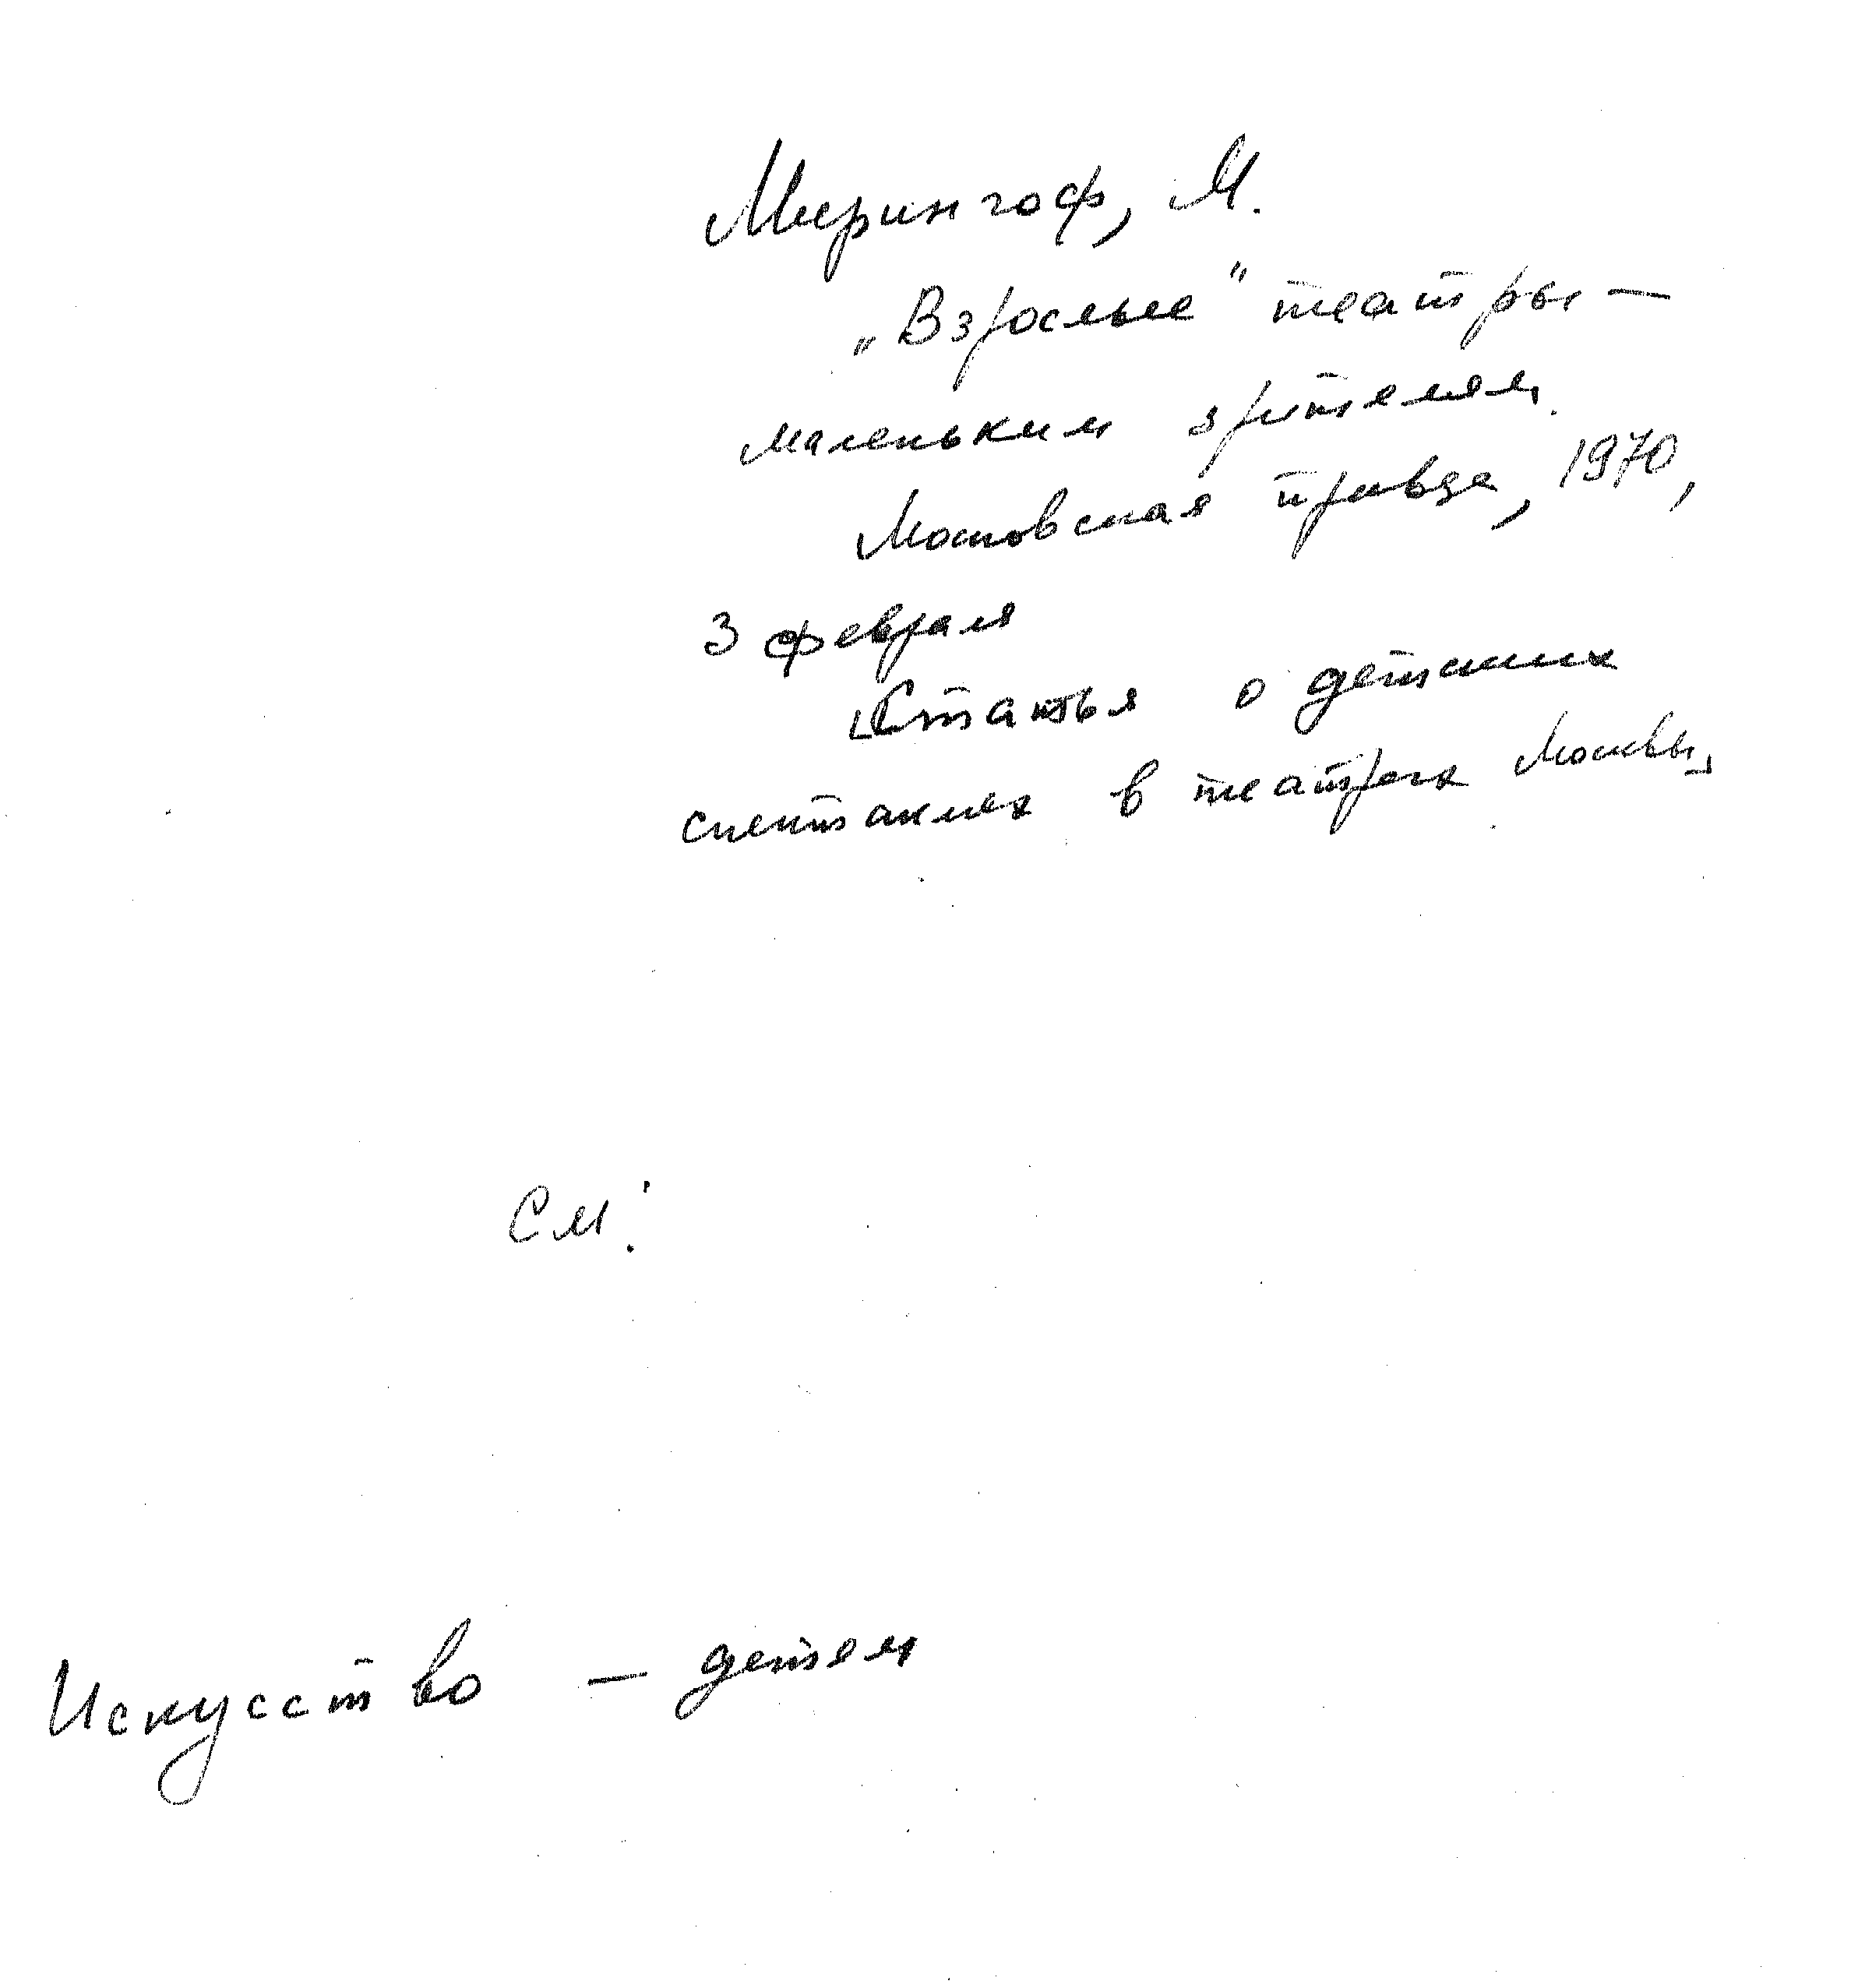 Мерингоф, М.
„Взрослые" театры —
маленьким зрителям.
Московская правда, 1970,
3 февраля
[Статья о детских
спектаклях в театрах Москвы]
См:
Искусство — детям